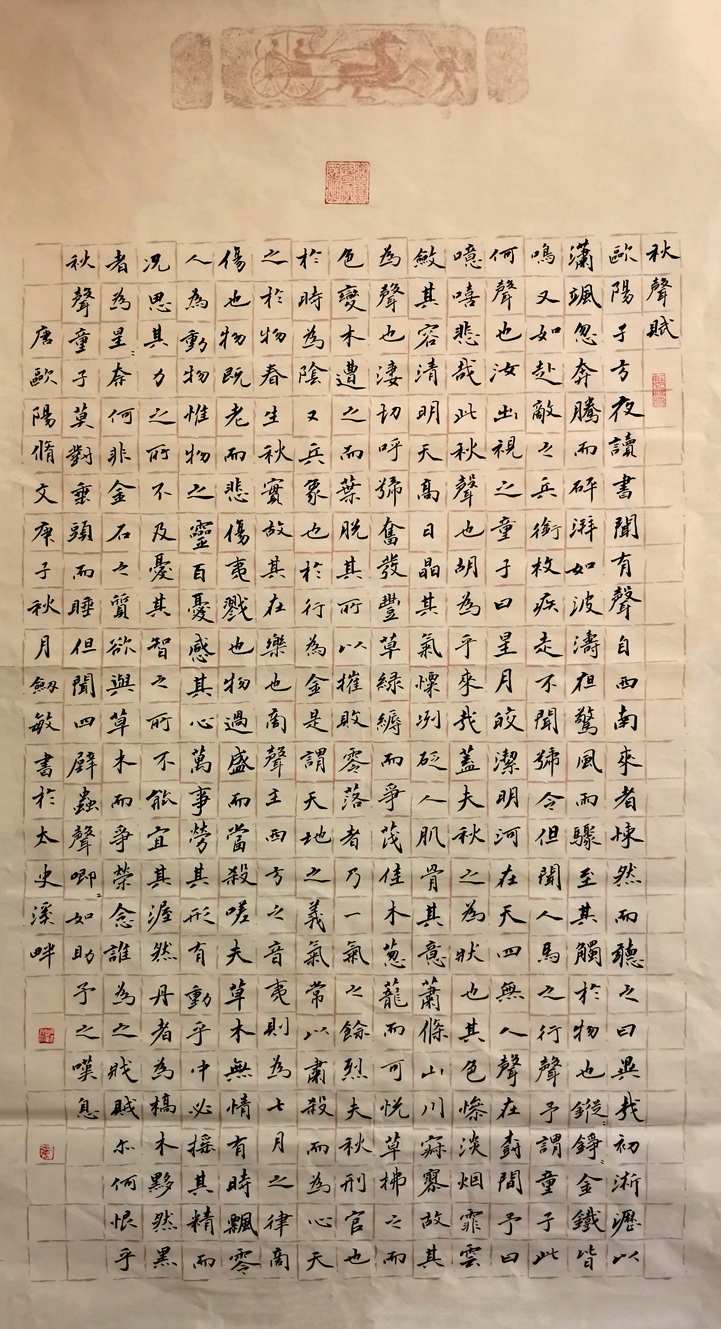 秋聲賦
歐陽子方夜讀書聞有聲自西南來者悚然而聽之曰異哉初淅瀝以
瀟颯忽奔騰而砰湃如波濤夜驚風雨驟至其觸於物也鏦〻錚〻金鐵皆
鳴又如赴敵之兵銜枚疾走不聞號令但聞人馬之行聲予謂童子此
何聲也汝出視之童子曰星月皎潔明河在天四無人聲在樹間予曰
噫嘻悲哉此秋聲也胡為乎來哉蓋夫秋之為狀也其色慘淡烟霏雲
斂其容清明天高日晶其氣慄冽砭人肌骨其意蕭條山川寂寥故其
為聲也淒切呼號奮發豐草綠縟而爭茂佳木葱蘢而可悅草拂之而
色變木遭之而葉脫其所以摧敗零落者乃一氣之餘烈夫秋刑官也
於時為陰又兵象也於行為金是謂天地之義氣常以肅殺而為心天
之於物春生秋實故其在樂也商聲主西方之音夷則為七月之律商
傷也物既老而悲傷夷戮也物過盛而當殺嗟夫草木無情有時飄零
人為動物惟物之靈百憂感其心萬事勞其形有動乎中必搖其精而
况思其力之所不及憂其智之所不能宜其渥然丹者為槁木黟然黑
者為星〻奈何非金石之質欲與草木而爭榮念誰為之戕賊亦何恨乎
秋聲童子莫對垂頭而睡但聞四壁蟲聲唧〻如助予之嘆息
唐歐陽脩文庚子秋月劔敏書於太史溪畔